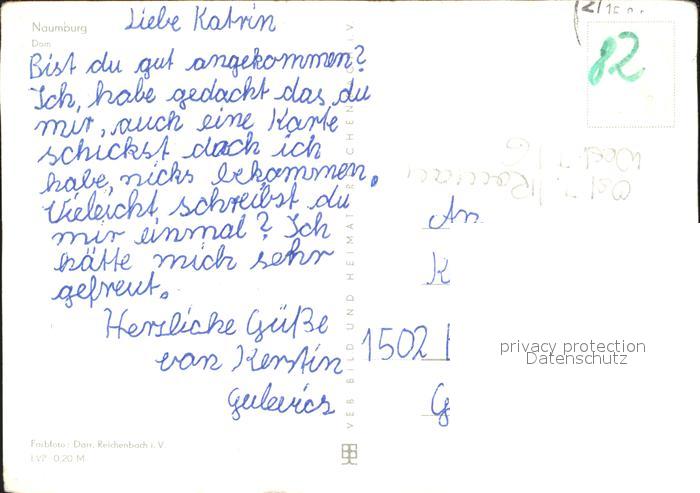 Naumburg
Dom
Liebe Katrin
Bist du gut angekommen?
Ich, habe gedacht das du
mir, auch eine Karte
schickst doch ich
habe, nicks bekommen.
Vieleicht, schreibst du
mir einmal? Ich
hätte mich sehr
gefreut.
Herzliche Güße
von Kerstin
82
An
K
1502
G
privacy protection
Datenschutz
Farbfoto: Darr, Reichenbach i. V.
EVP 0,20 M
VEB BILD UND HEIMAT REICHENBACH